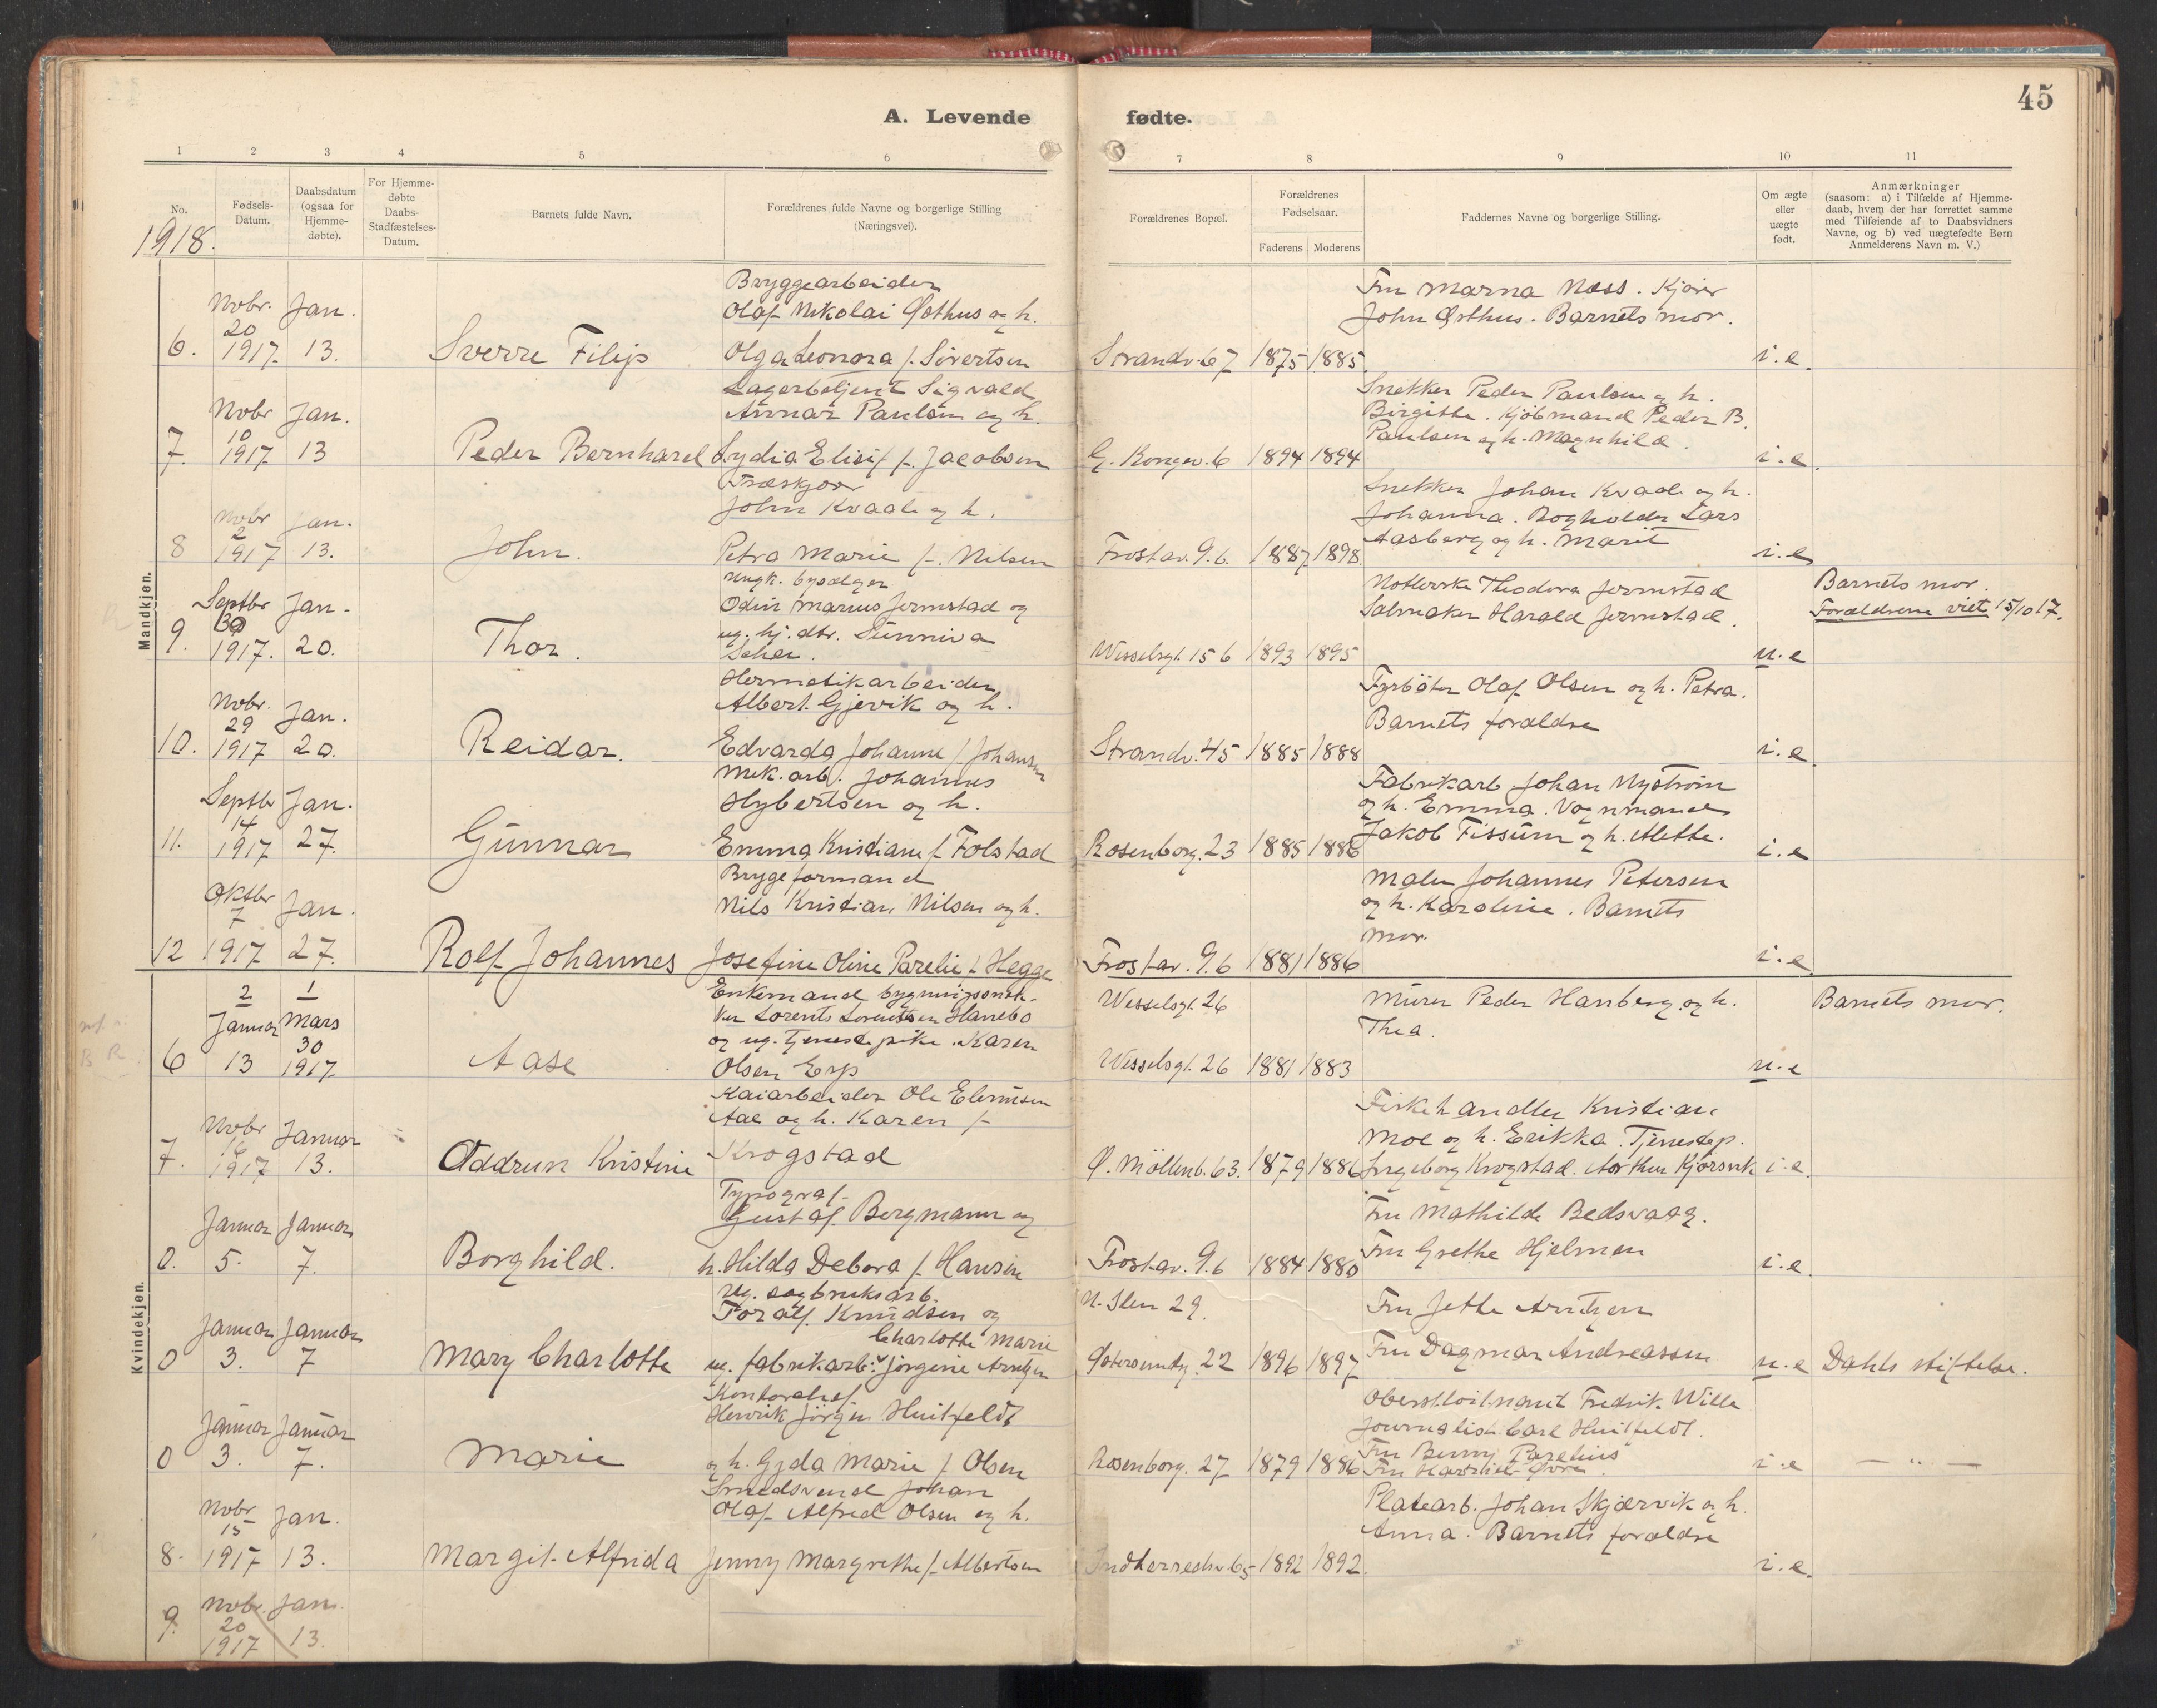 45
A. Levende fødte.
1 2 3 4 5 6 7 8 9 10 11
No.
Fødsels-Datum.
Daabsdatum (ogsaa for Hjemme-døbte).
For Hjemme-døbte Daabs-Stadfæstelses-Datum.
Barnets fulde Navn.
Forældrenes fulde Navne og borgerlige Stilling (Næringsvei).
Forældrenes Bopæl.
Forældrenes Fødselsaar.
Faderens Moderens
Faddernes Navne og borgerlige Stilling.
Om ægte eller uægte født.
Anmærkninger
(saasom: a) i Tilfælde af Hjemme-
daab, hvem der har forrettet samme
med Tilføiende af to Daabsvidners
Navne, og b) ved uægtefødte Børn
Anmelderens Navn m. V.)
1918.
Mandkjøn.
6. Nobr. 20 1917. Jan. 13.
Sverre Filip
Bryggearbeider
Olaf Nikolai Østhus og h.
Olga Leonora f. Sivertsen
Strandv. 67 1875 1885
Fru Marna Næss. Kjører
John Østhus. Barnets mor.
i.e.
7. Nobr 10 1917. Jan. 13
Peder Bernhard
Lagerbetjent Sigvald
Annar Paulsen og h.
Lydia Elisif f. Jacobsen
G. Kongev. 6 1894 1894
Snekker Peder Paulsen og h.
Birgitte. Kjøbmand Peder B.
Paulsen og h. Magnhild.
i.e.
8 Nobr 2 1917 Jan. 13.
John.
Træskjær
John Kvaale og h.
Petra Marie f. Nilsen
Frostav. 9.6. 1887 1898
Snekker Johan Kvaale og h.
Johanna. Bogholder Lars
Aasberg og h. Marit
i.e
9. Septbr 30 1917. Jan. 20.
Thor.
Ungk. bysælger
Odin Marius Jermstad og
ug. hj. dtr. Sunniva
Scher.
Wesselsgt. 15 b 1893 1895
Theodora Jermstad
Salmaker Harald Jermstad.
u.e
Barnets mor.
Forældrene viet 15/10 17.
10. Nobr. 29 1917 Jan. 20.
Reidar.
Hermetikarbeider
Albert Gjevik og h.
Edvarda Johanne f. Johansen
Strandv. 45 1885 1888
Fyrbøter Olaf Olsen og h. Petra.
Barnets forældre
i.e.
11. Septbr 14 1917 Jan. 27.
Gunnar
Mek. arb. Johannes
Hybertsen og h.
Emma Kristiane f. Folstad
Rosenborg. 23 1885 1886
Fabrikarb Johan Nystrøm
og h. Emma. Vognmand
Jakob Fissum og h. Alette.
i.e
12 Oktbr 7 1917 Jan. 27.
Rolf Johannes
Bryggeformand
Nils Kristian Nilsen og h.
Josefine Oline Parelie f. Hegge
Frostav. 9.6 1881 1886
Maler Johannes Petersen
og h. Karoline. Barnets
mor.
i.e
Kvindekjøn.
6 2 Januar 13 1 Mars 30 1917.
Aase
Enkemand bygningssnek-
ker Lorents Lorentsen Hanebo
og ug. tjenestepike. Karen
Olsen Erp
Wesselsgt. 26
Wesselsgt. 26 1881 1883
Murer Peder Hanberg og h.
Thea.
u.e
Barnets mor.
7. Nobr 16 1917 Januar 13.
Oddrun Kristine
Kaiarbeider Ole Elernsen
Aae og h. Karen f.
Krogstad
Ø. Møllenb. 63. 1879 1886
Fiskehandler Kristian
Moe og h. Erikka. Tjenestep.
Ingeborg Krogstad. Arthur Kjørsvik
i.e.
0. Januar 5. Januar 7.
Borghild.
Typograf
Gustaf Bergmann og
h. Hilda Debora f. Hansen
Frostav. 9.6 1884 1880
Fru Mathilde Bedsvaag.
Fru Grethe Hjelmen
i.e.
0 Januar 3. Januar 7
Mary Charlotte
ug. sagbruksarb.
Toralf Knudsen og
Charlotte Marie
ug. fabrikarb. Jørgine Arntzen
N. Ilen 29.
Østersundsg. 22 1896 1897
Fru Jette Arntzen
Fru Dagmar Andreassen
u.e
Dahls stiftelse.
0 Januar 3. Januar 7.
Marie
Kontorchef
Henrik Jørgen Huitfeldt
og h. Gyda Marie f. Olsen
Rosenborg. 27 1879 1886
Oberstløitnant Fredrik Wille
Journalist Carl Huitfeldt.
Fru Benny Parelius
Fru Harriet
i e
— „ —
8. Nobr 15 1917 Jan. 13.
Margit Alfrida
Smedsvend Johan
Olaf Alfred Olsen og h.
Jenny Margrethe f. Albertsen
Indherredsv. 65 1892 1892.
Platearb. Johan Skjærvik og h.
Anna. Barnets forældre
i.e.
9. Nobr. 20 1917 Jan. 13.